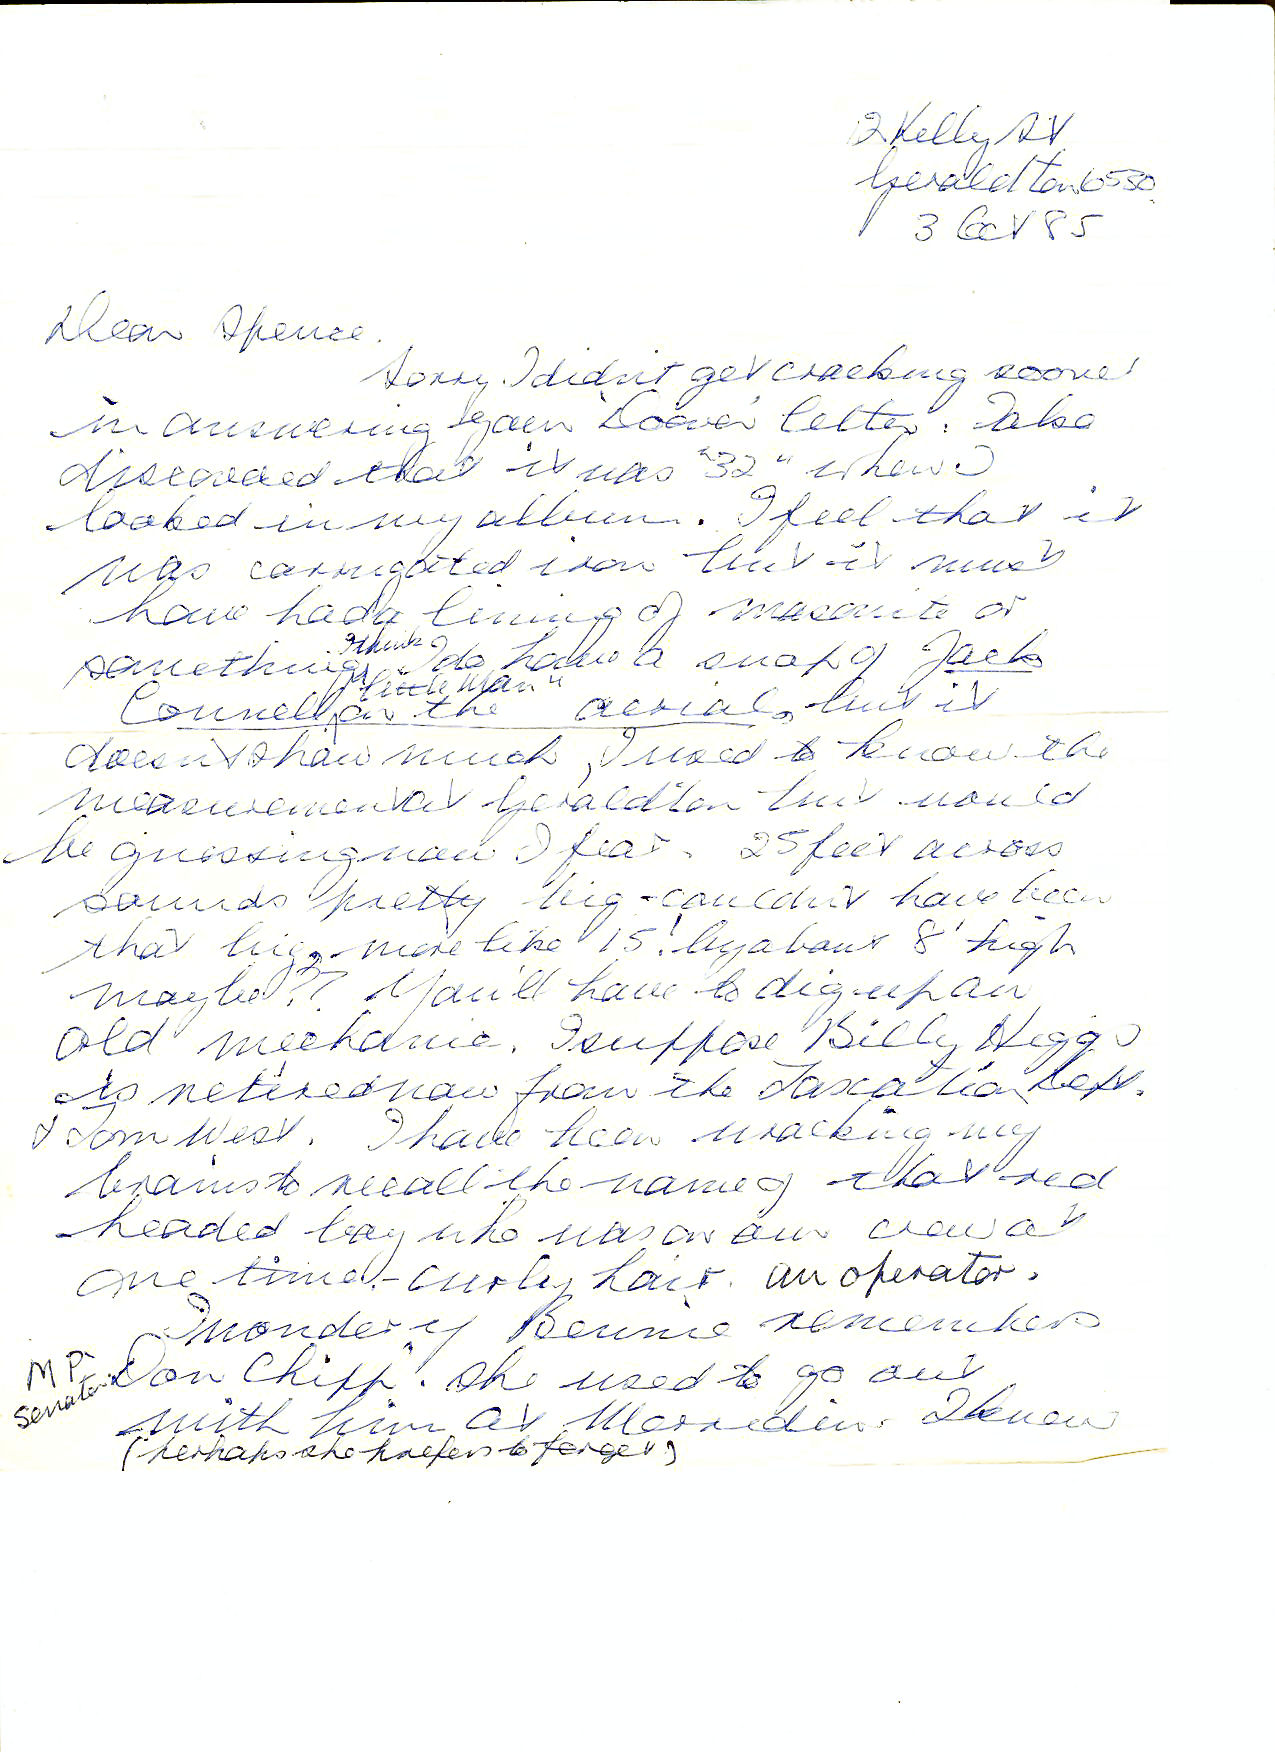 2 Kelly St
Geraldton 6530.
3 Oct 85
Dear Spence.
Sorry I didn't get cracking sooner
in answering your letter. I also
discovered that it was "32" when I
looked in my album. I feel that it
was corrugated iron but it must
have had a lining of masonite or
I think
something. I do have a snap of Jack
"little Man"
Connell, on the aerial, but it
doesn't show much, I used to know the
measurement at Geraldton but would
be guessing now I fear. 25 feet across
sounds pretty big - couldn't have been
that big, - more like 15' by about 8' high
maybe?? You'll have to dig up an
old mechanic. I suppose Billy Higgs
is retired now from the Taxation Dept.
& Tom West. I have been wracking my
brains to recall the name of that red
headed boy who was on our crew at
one time - curly hair. an operator.
I wonder if Bernie remembers
MP
Senator
Don Chipp. She used to go out
with him at Merredin. I know
(perhaps she prefers to forget)